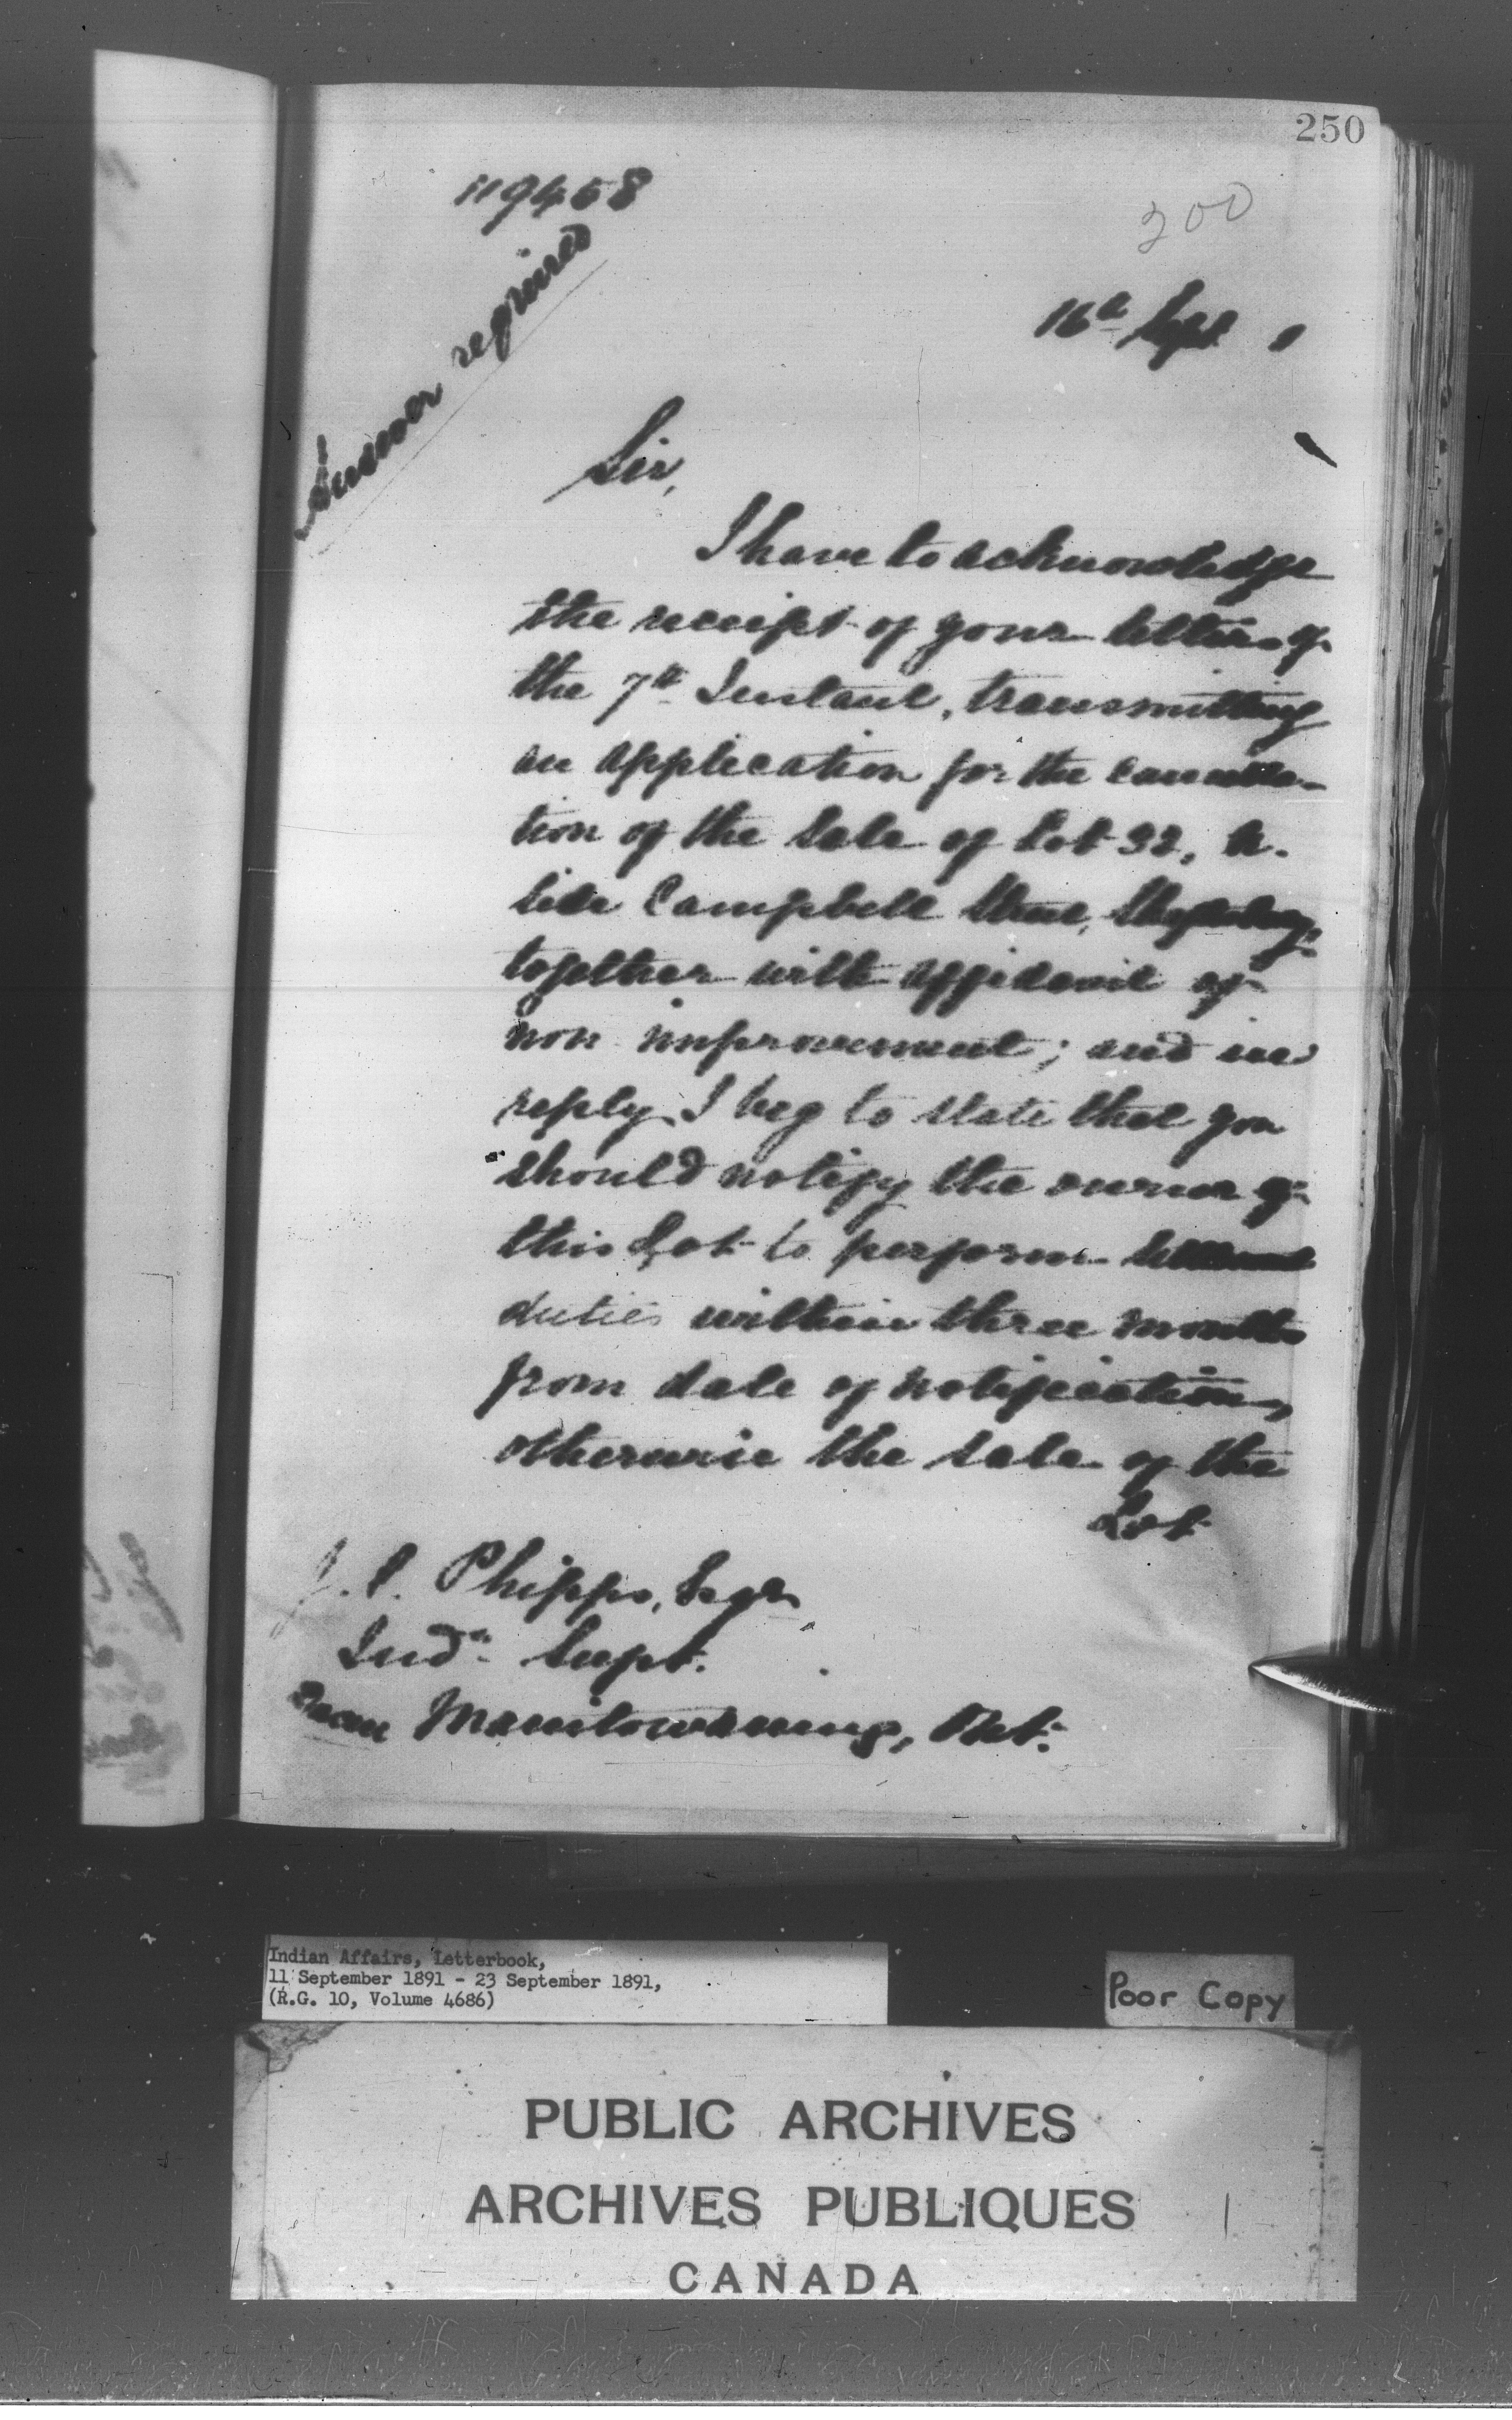 250
119458
200
Answer required
16th Sept 1
Sir,
I have to acknowledge
the receipt of your letter of
the 7th Instant, transmitting
an application for the cancella-
tion of the Sale of Lot 32,
Campbell
together with affidavit of
non improvement; and in
reply I beg to state that you
should notify the owner of
this Lot to perform settlement
duties within three months
from date of notification,
otherwise the sale of the
Lot
J. C. Phipps, Esqr
Indn Supt.
Manitowaning, Ont.
Indian Affairs, Letterbook,
11 September 1891 - 23 September 1891,
(R.G. 10, Volume 4686)
Poor Copy
PUBLIC ARCHIVES
ARCHIVES PUBLIQUES
CANADA